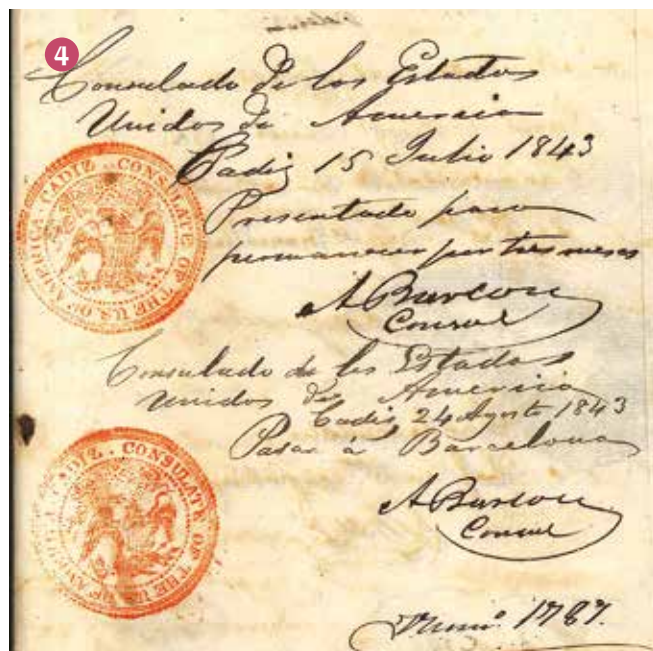 4
Consulado de los Estados
Unidos de America
Cadiz 15 Julio 1843
Presentado para
permanecer por tres meses
A Burton
Consul
CADIZ . CONSULATE OF THE U.S. OF AMERICA
Consulado de los Estados
Unidos de America
Cadiz 24 Agosto 1843
Pasar á Barcelona
A Burton
Consul
CADIZ . CONSULATE OF THE U.S. OF AMERICA
Numº 1787.